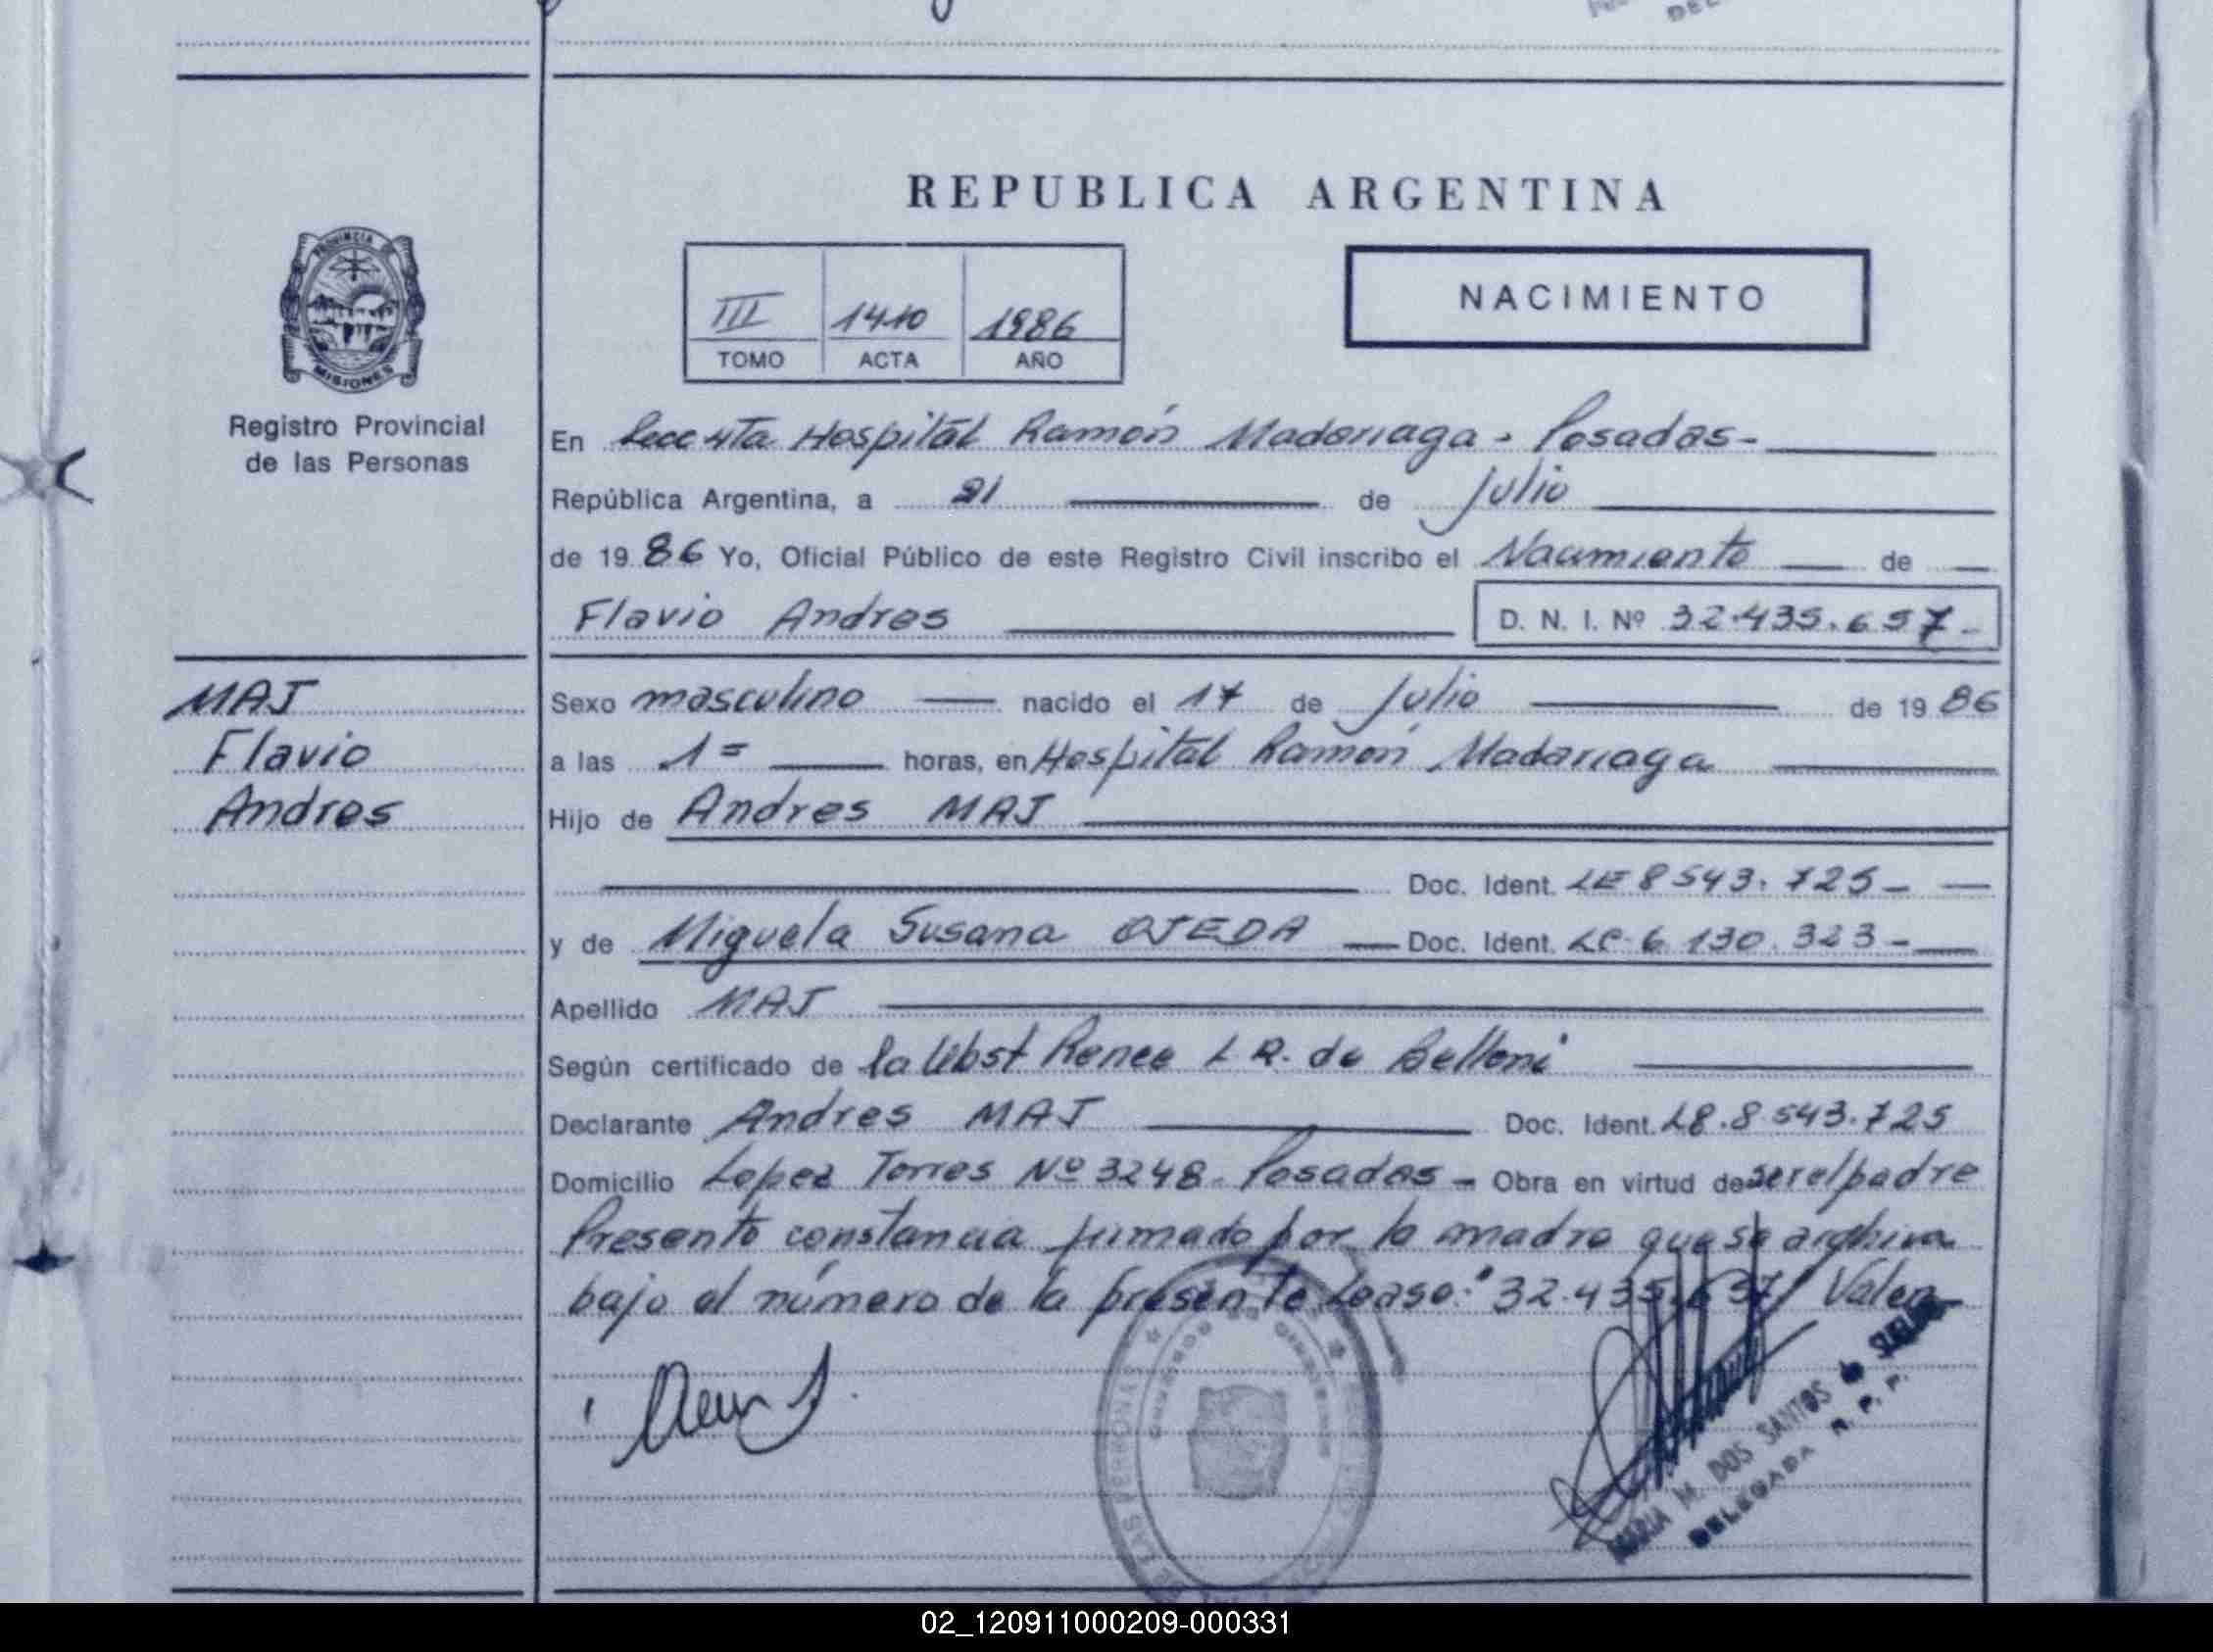 REPUBLICA ARGENTINA
PROVINCIA DE
MISIONES
Registro Provincial
de las Personas
III 1410 1986
TOMO ACTA AÑO
NACIMIENTO
En Secc 4ta Hospital Ramón Madariaga - Posadas-
República Argentina, a 21 de julio
de 1986 Yo, Oficial Público de este Registro Civil inscribo el Nacimiento de
Flavio Andres D. N. I. Nº 32.435.657-
MAJ
Flavio
Andres
Sexo masculino nacido el 17 de julio de 1986
a las 1= horas, en Hospital Ramón Madariaga
Hijo de Andres MAJ
Doc. Ident. LE 8543.725-
y de Miguela Susana OJEDA Doc. Ident. LC-6.130.323-
Apellido MAJ
Según certificado de la Obst Renee L.R. de Belloni
Declarante Andres MAJ Doc. Ident. LE.8.543.725
Domicilio Lopez Torres Nº 3248- Posadas - Obra en virtud de ser el padre
Presento constancia firmado por la madre que se archiva
bajo el número de la presente Lease: "32.435.657" Vale
DE LAS PERSONAS
MARIA M. DOS SANTOS de
DELEGADA R. P. P.
02_120911000209-000331